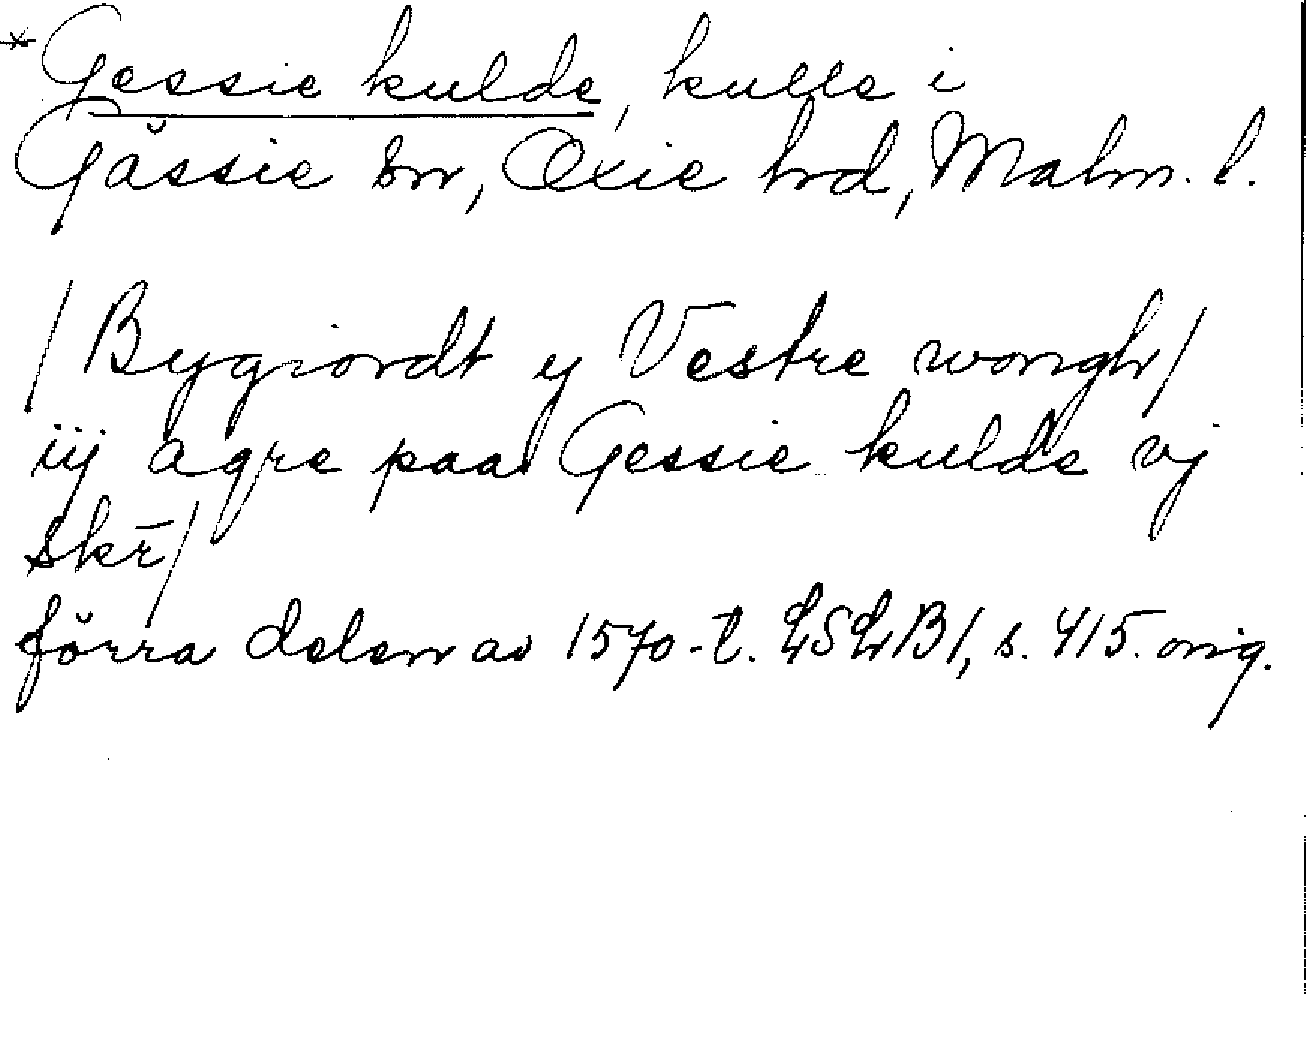 * Gessie kulde, kulle i
Gässie sn, Oxie hrd, Malm. l.
/Bygiordt y Vestre wongh/
iij agre paa Gessie kulde vj
skr̄/
förra delen av 1570-t. LSLB1, s. 415. orig.